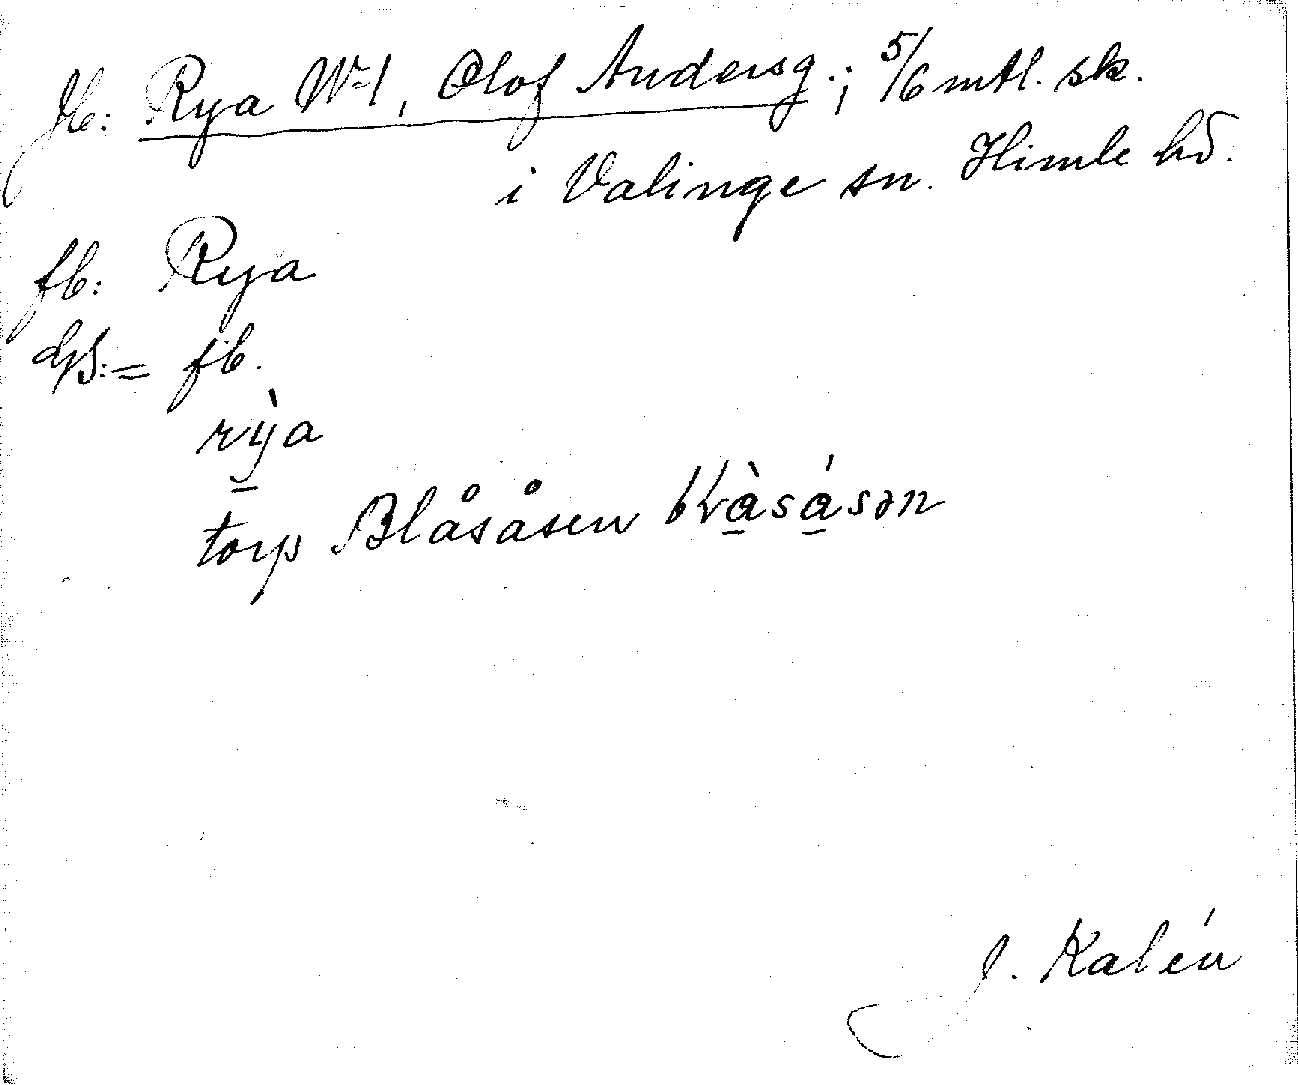 Jb: Rya N-1, Olof Andersg.; 5/6 mtl. sk.
i Valinge sn. Himle hd.
fb: Rya
GS: = fb.
rỳa
torp Blåsåsen
J. Kalén